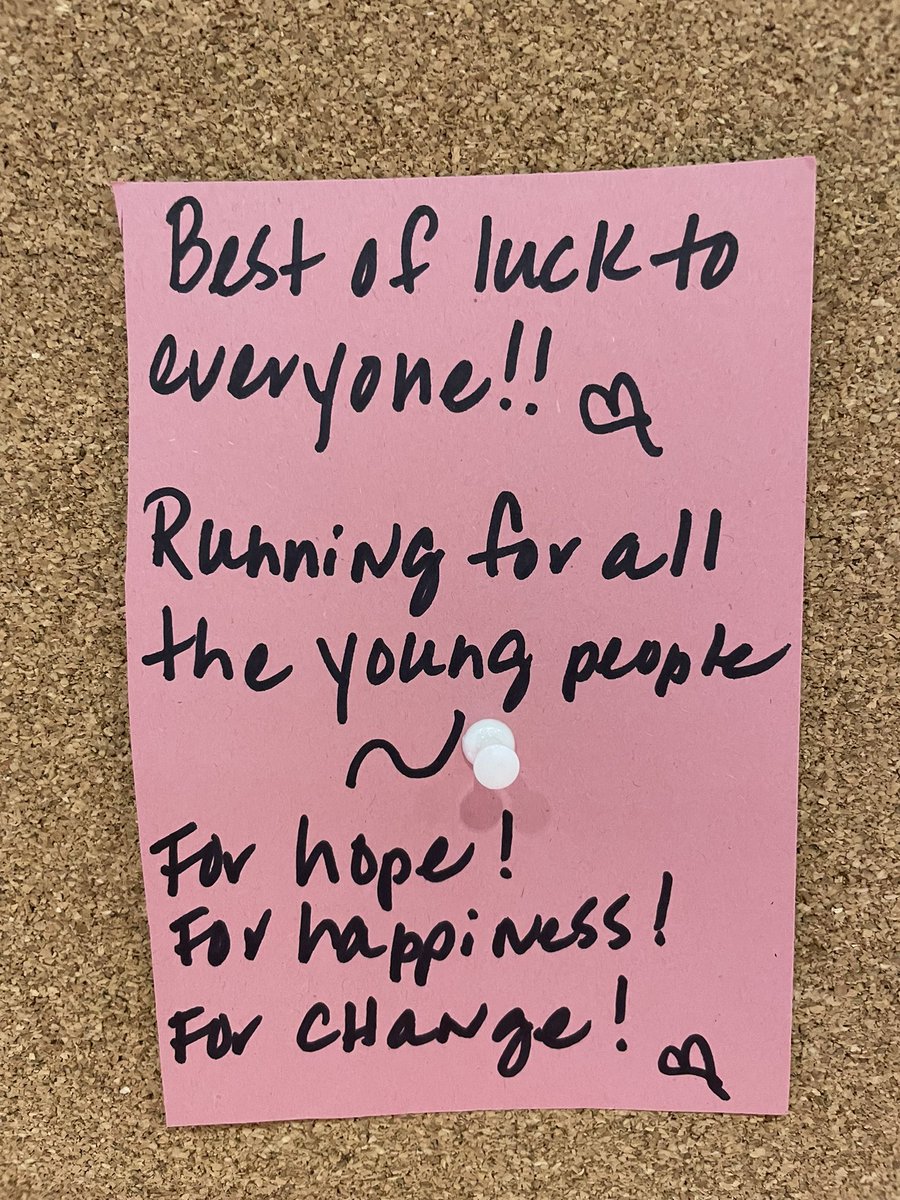 Best of luck to
everyone!!
Running for all
the young people
~
For hope!
For happiness!
For CHange!